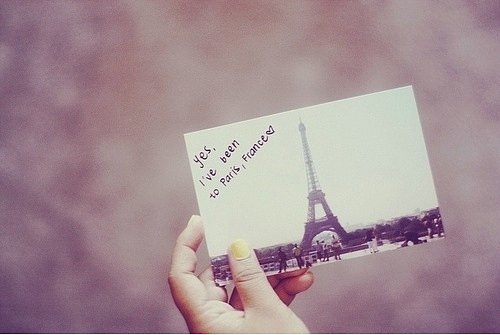 yes,
i've been
to Paris, France♡